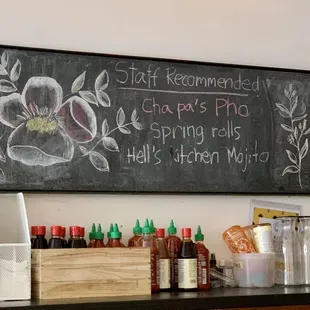 Staff Recommended
Chapa's Pho
Spring rolls
Hell's kitchen Mojito